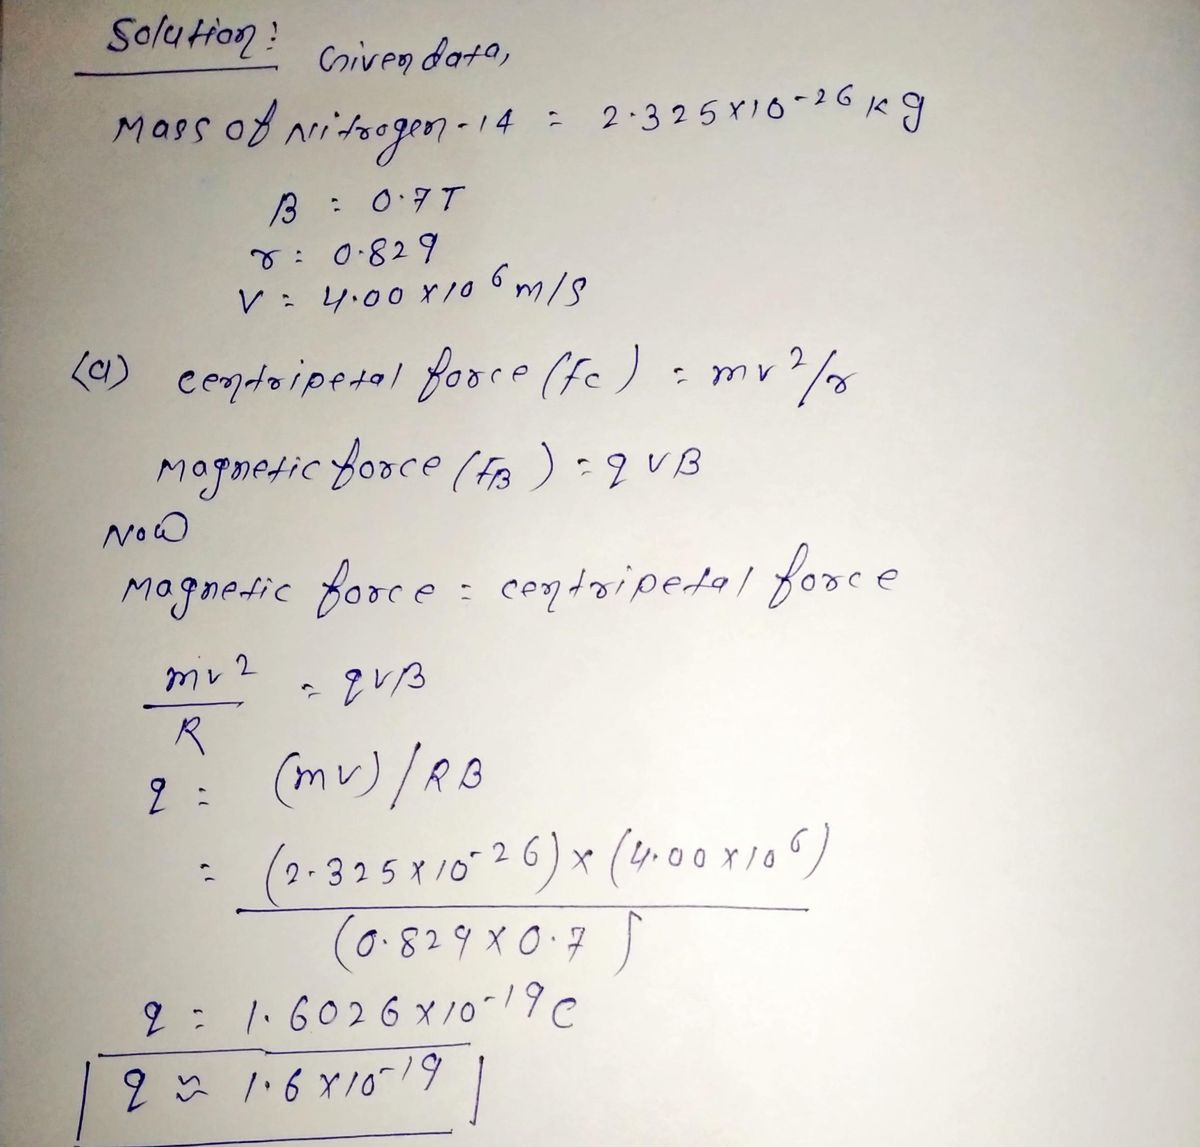 Solution:
Given data,
Mass of Nitrogen-14 = 2.325×10-26 kg
B = 0.7T
r = 0.829
V = 4.00×10 6 m/s
(a) centripetal force (fc) = mv2/r
Magnetic force (fB) = qvB
Now
Magnetic force = centripetal force
mv2 = qvB
R
q = (mv)/RB
= (2.325×10-26)×(4.00×106)
(0.829×0.7)
q = 1.6026×10-19C
q ≈ 1.6×10-19